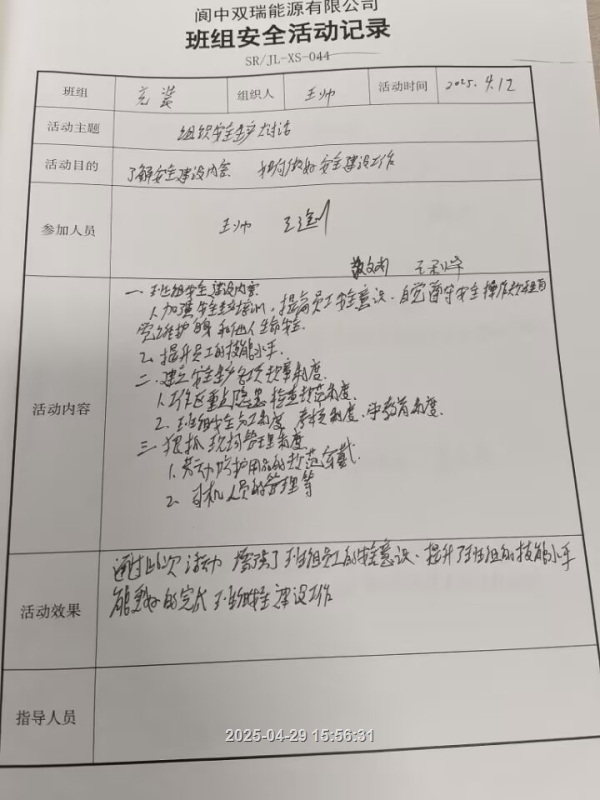 阆中双瑞能源有限公司
班组安全活动记录
SR/JL-XS-044
班组 充装 组织人 王帅 活动时间 2025.4.12
活动主题 组织安全生产大讲话
活动目的 了解安全建设内容 如何做好安全建设工作
参加人员 王帅
活动内容
一、班组安全建设内容
1.加强安全生产培训,提高员工安全意识,自觉遵守安全操作规程自
觉维护自身和他人生命安全.
2、提升员工的技能水平.
二、建立安全生产各项规章制度.
1.工作区重点隐患检查规范制度.
2、班组安全员工制度、考核制度、
三、狠抓现场管理制度
1.劳动防护用品的规范穿戴.
2、司机人员的管理等
活动效果 通过此次活动 增强了班组员工的安全意识、提升了班组的技能水平
能更好的完成班组安全建设工作
指导人员
2025-04-29 15:56:31